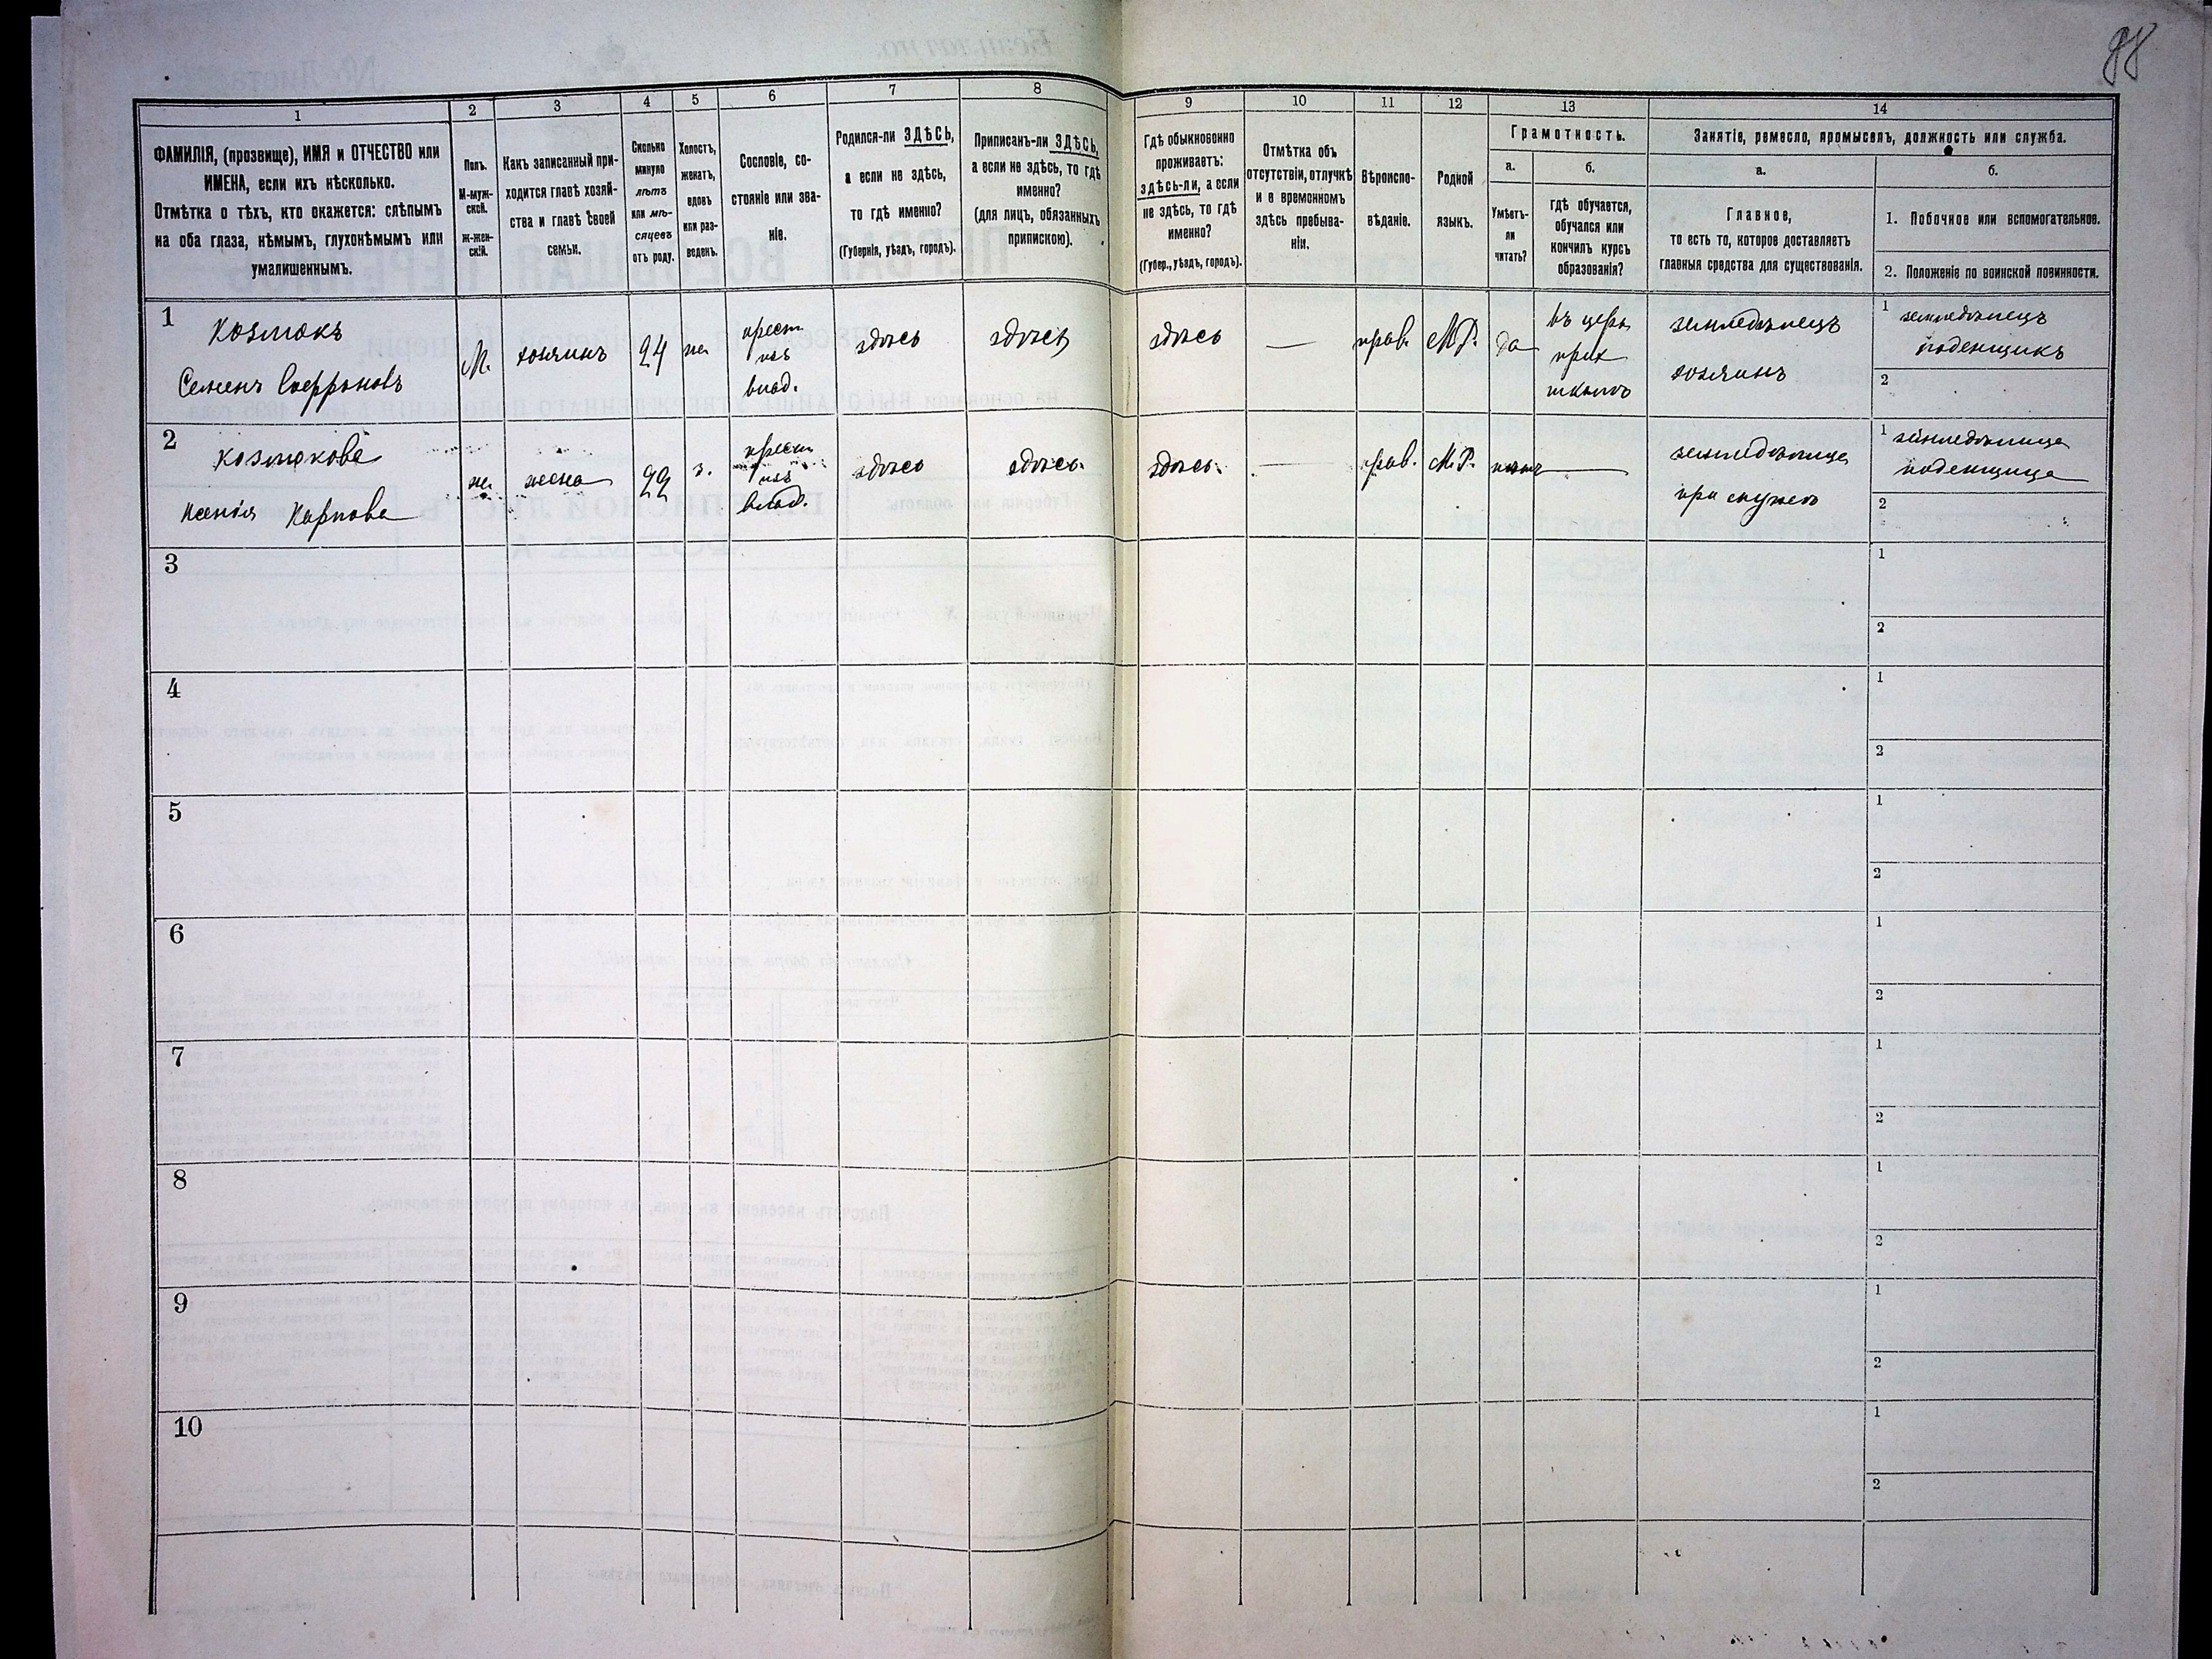 88
1
2
3
4
5
6
7
8
9
10
11
12
13
14
ФАМИЛІЯ, (прозвище), ИМЯ и ОТЧЕСТВО или
ИМЕНА, если ихъ нѣсколько.
Отмѣтка о тѣхъ, кто окажется: слѣпымъ
на оба глаза, нѣмымъ, глухонѣмымъ или
умалишеннымъ.
Полъ.
М-муж-
ской.
ж-жен-
скій.
Какъ записанный при-
ходится главѣ хозяй-
ства и главѣ своей
семьи.
Сколько
минуло
лѣтъ
или мѣ-
сяцевъ
отъ роду.
Холостъ,
женатъ,
вдовъ
или раз-
веденъ.
Сословіе, со-
стояніе или зва-
ніе.
Родился-ли ЗДѢСЬ,
а если не здѣсь,
то гдѣ именно?
(Губернія, уѣздъ, городъ).
Приписанъ-ли ЗДѢСЬ,
а если не здѣсь, то гдѣ
именно?
(для лицъ, обязанныхъ
припискою).
Гдѣ обыкновенно
проживаетъ:
здѣсь-ли, а если
не здѣсь, то гдѣ
именно?
(Губер., уѣздъ, городъ).
Отмѣтка объ
отсутствіи, отлучкѣ
и о временномъ
здѣсь пребыва-
ніи.
Вѣроиспо-
вѣданіе.
Родной
языкъ.
Грамотность.
а.
Умѣетъ-
ли
читать?
б.
гдѣ обучается,
обучался или
кончилъ курсъ
образованія?
Занятіе, ремесло, промыселъ, должность или служба.
а.
Главное,
то есть то, которое доставляетъ
главныя средства для существованія.
б.
1. Побочное или вспомогательное.
2. Положеніе по воинской повинности.
1
Козмокъ
Семенъ Соеррьновъ
М.
хозяинъ
24
же
крест
изъ
влад.
здѣсь
здѣсь
здѣсь
—
прав.
М.Р.
да
въ церк.
прих
школѣ
земледѣлецъ
хозяинъ
1 земледѣлецъ
поденщикъ
2
2
Козмокова
Ксенія Карпова
же
жена
22
з.
крест
изъ
влад.
здѣсь
здѣсь.
здѣсь.
—
прав.
М.Р.
нѣтъ
—
земледѣлица
при мужѣ
1 земледѣлица
поденщица
2
3
1
2
4
1
2
5
1
2
6
1
2
7
1
2
8
1
2
9
1
2
10
1
2